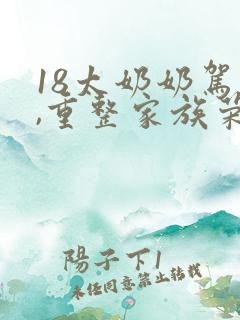 18太奶奶駕
,重整家族榮
陽子下1
未任同意禁止转载